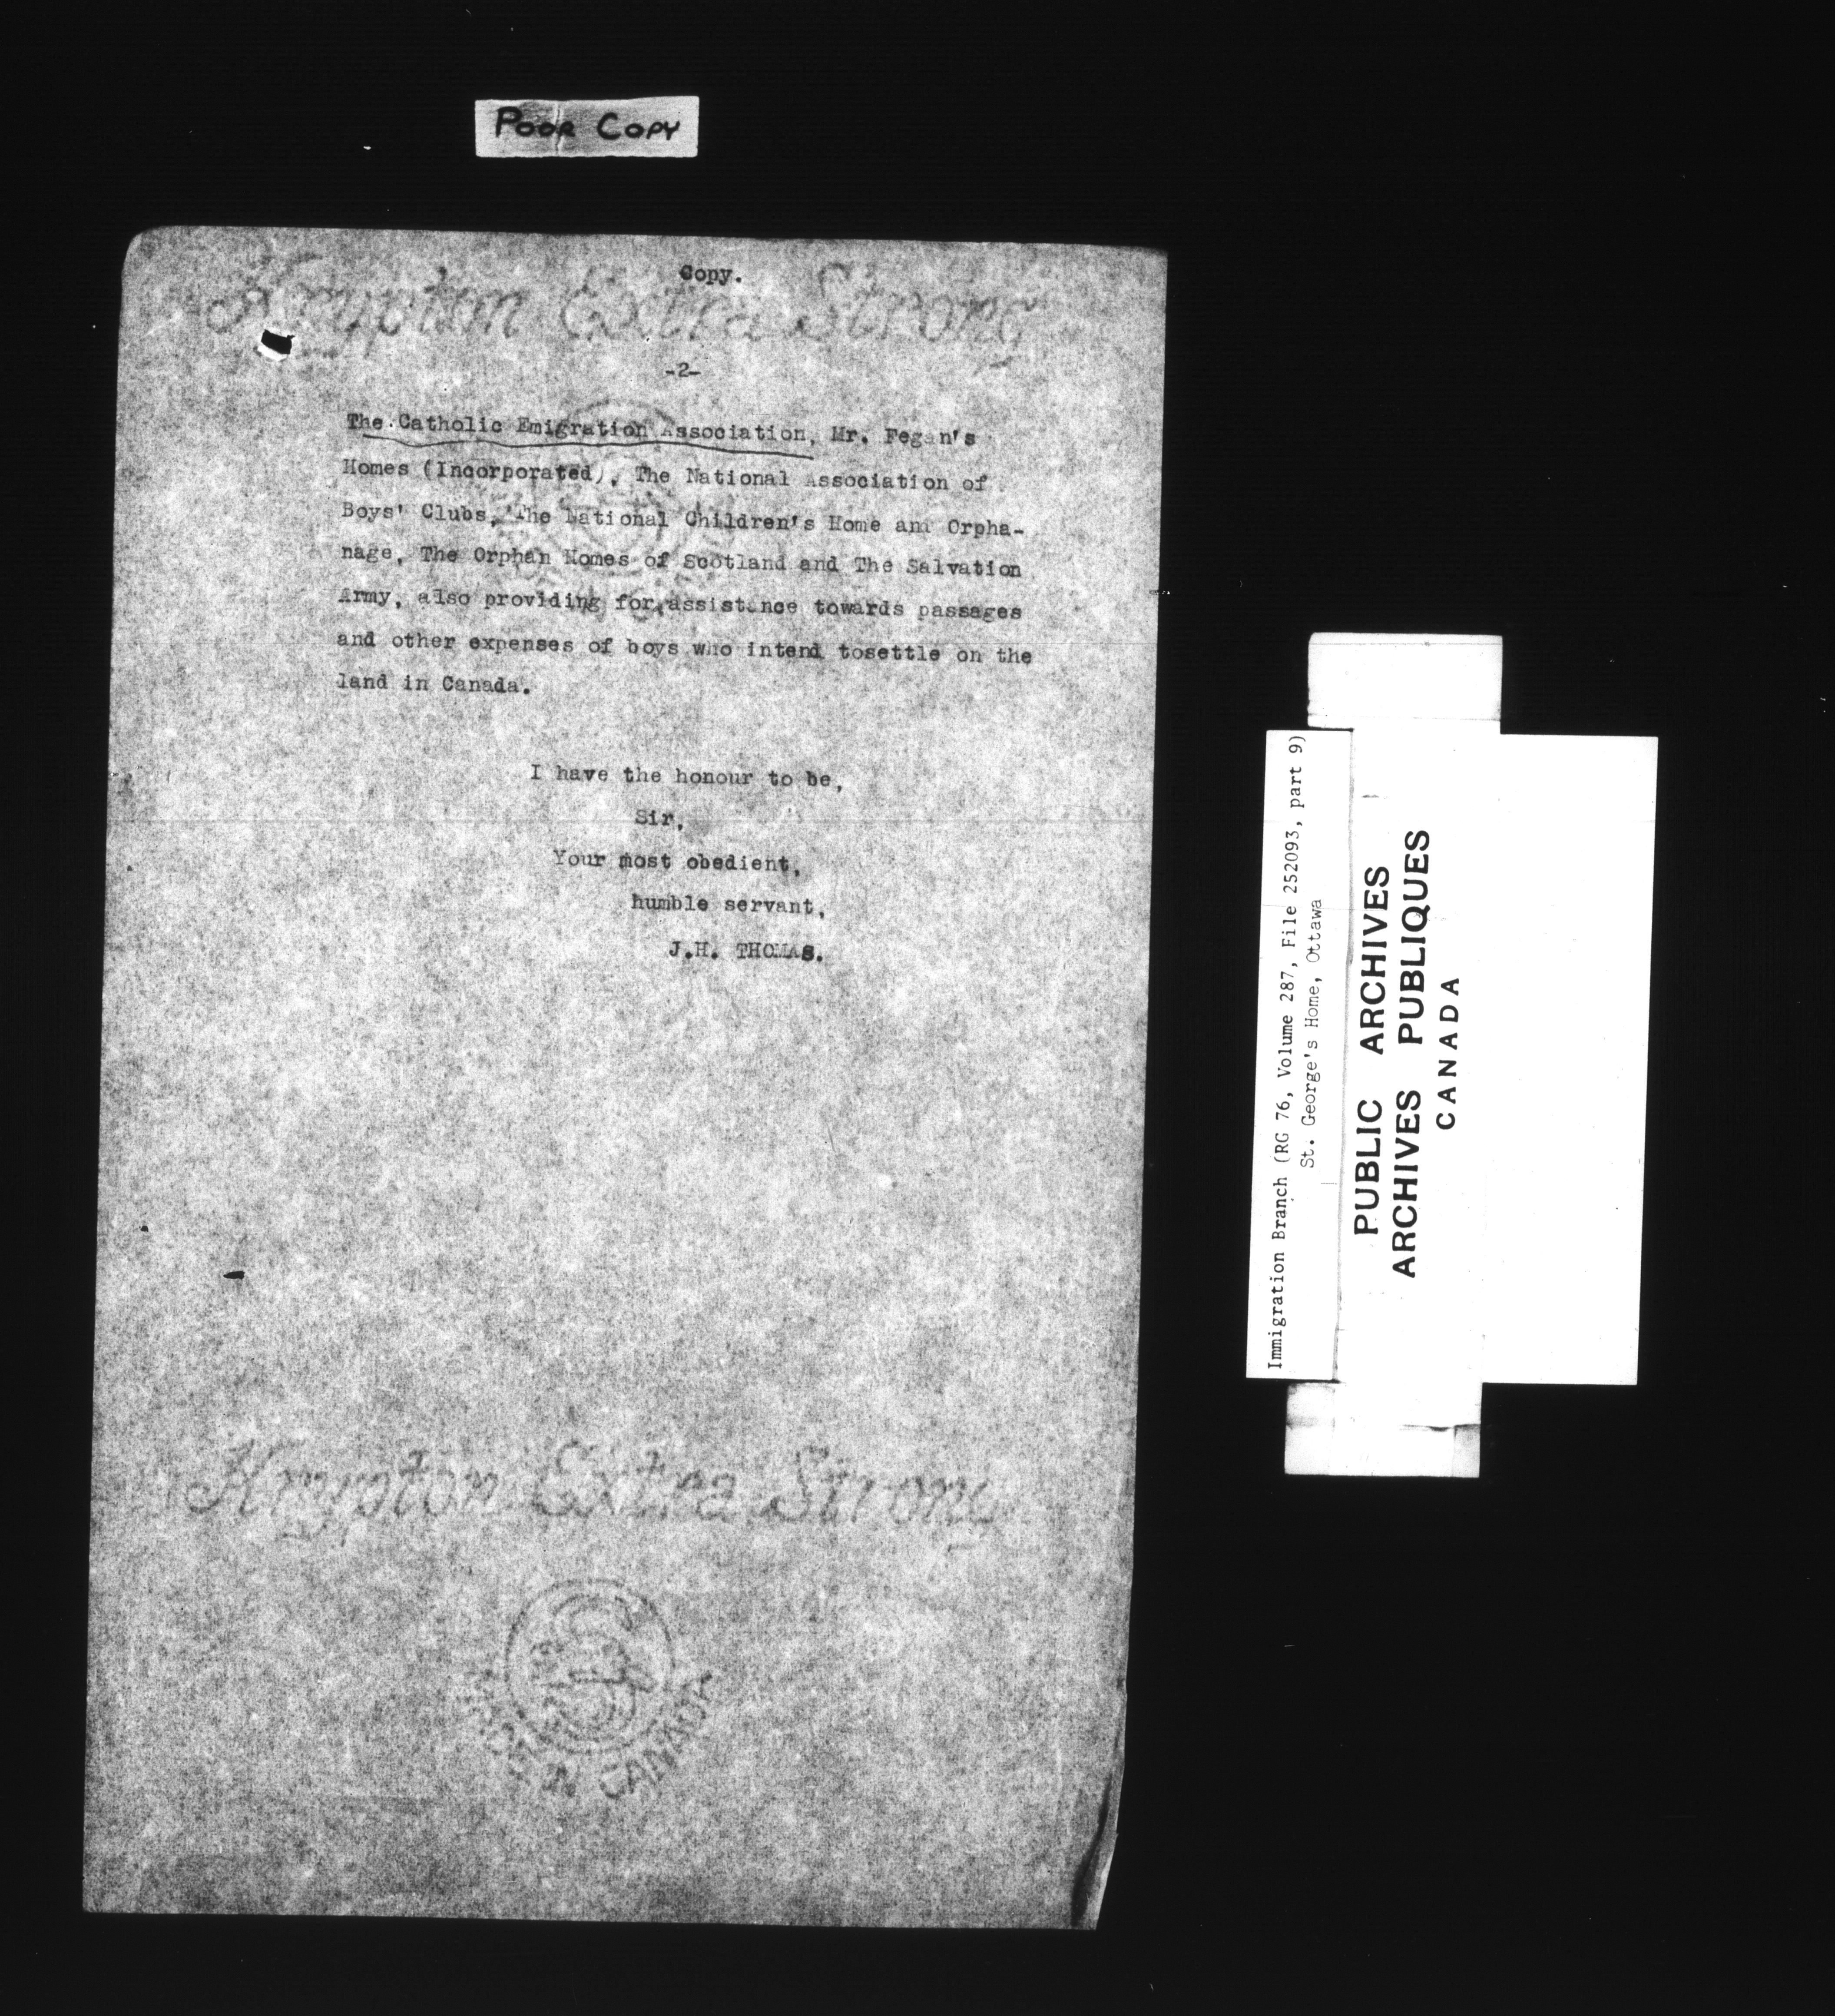 POOR COPY
Copy.
Krypton Extra Strong
-2-
The Catholic Emigration Association, Mr. Fegan's
Homes (Incorporated), The National Association of
Boys' Clubs, The National Children's Home and Orpha-
nage, The Orphan Homes of Scotland and The Salvation
Army, also providing for assistance towards passages
and other expenses of boys who intend tosettle on the
land in Canada.
I have the honour to be,
Sir,
Your most obedient,
humble servant,
J.H. THOMAS.
Krypton Extra Strong
IN CANADA
Immigration Branch (RG 76, Volume 287, File 252093, part 9)
St. George's Home, Ottawa
PUBLIC ARCHIVES
ARCHIVES PUBLIQUES
CANADA